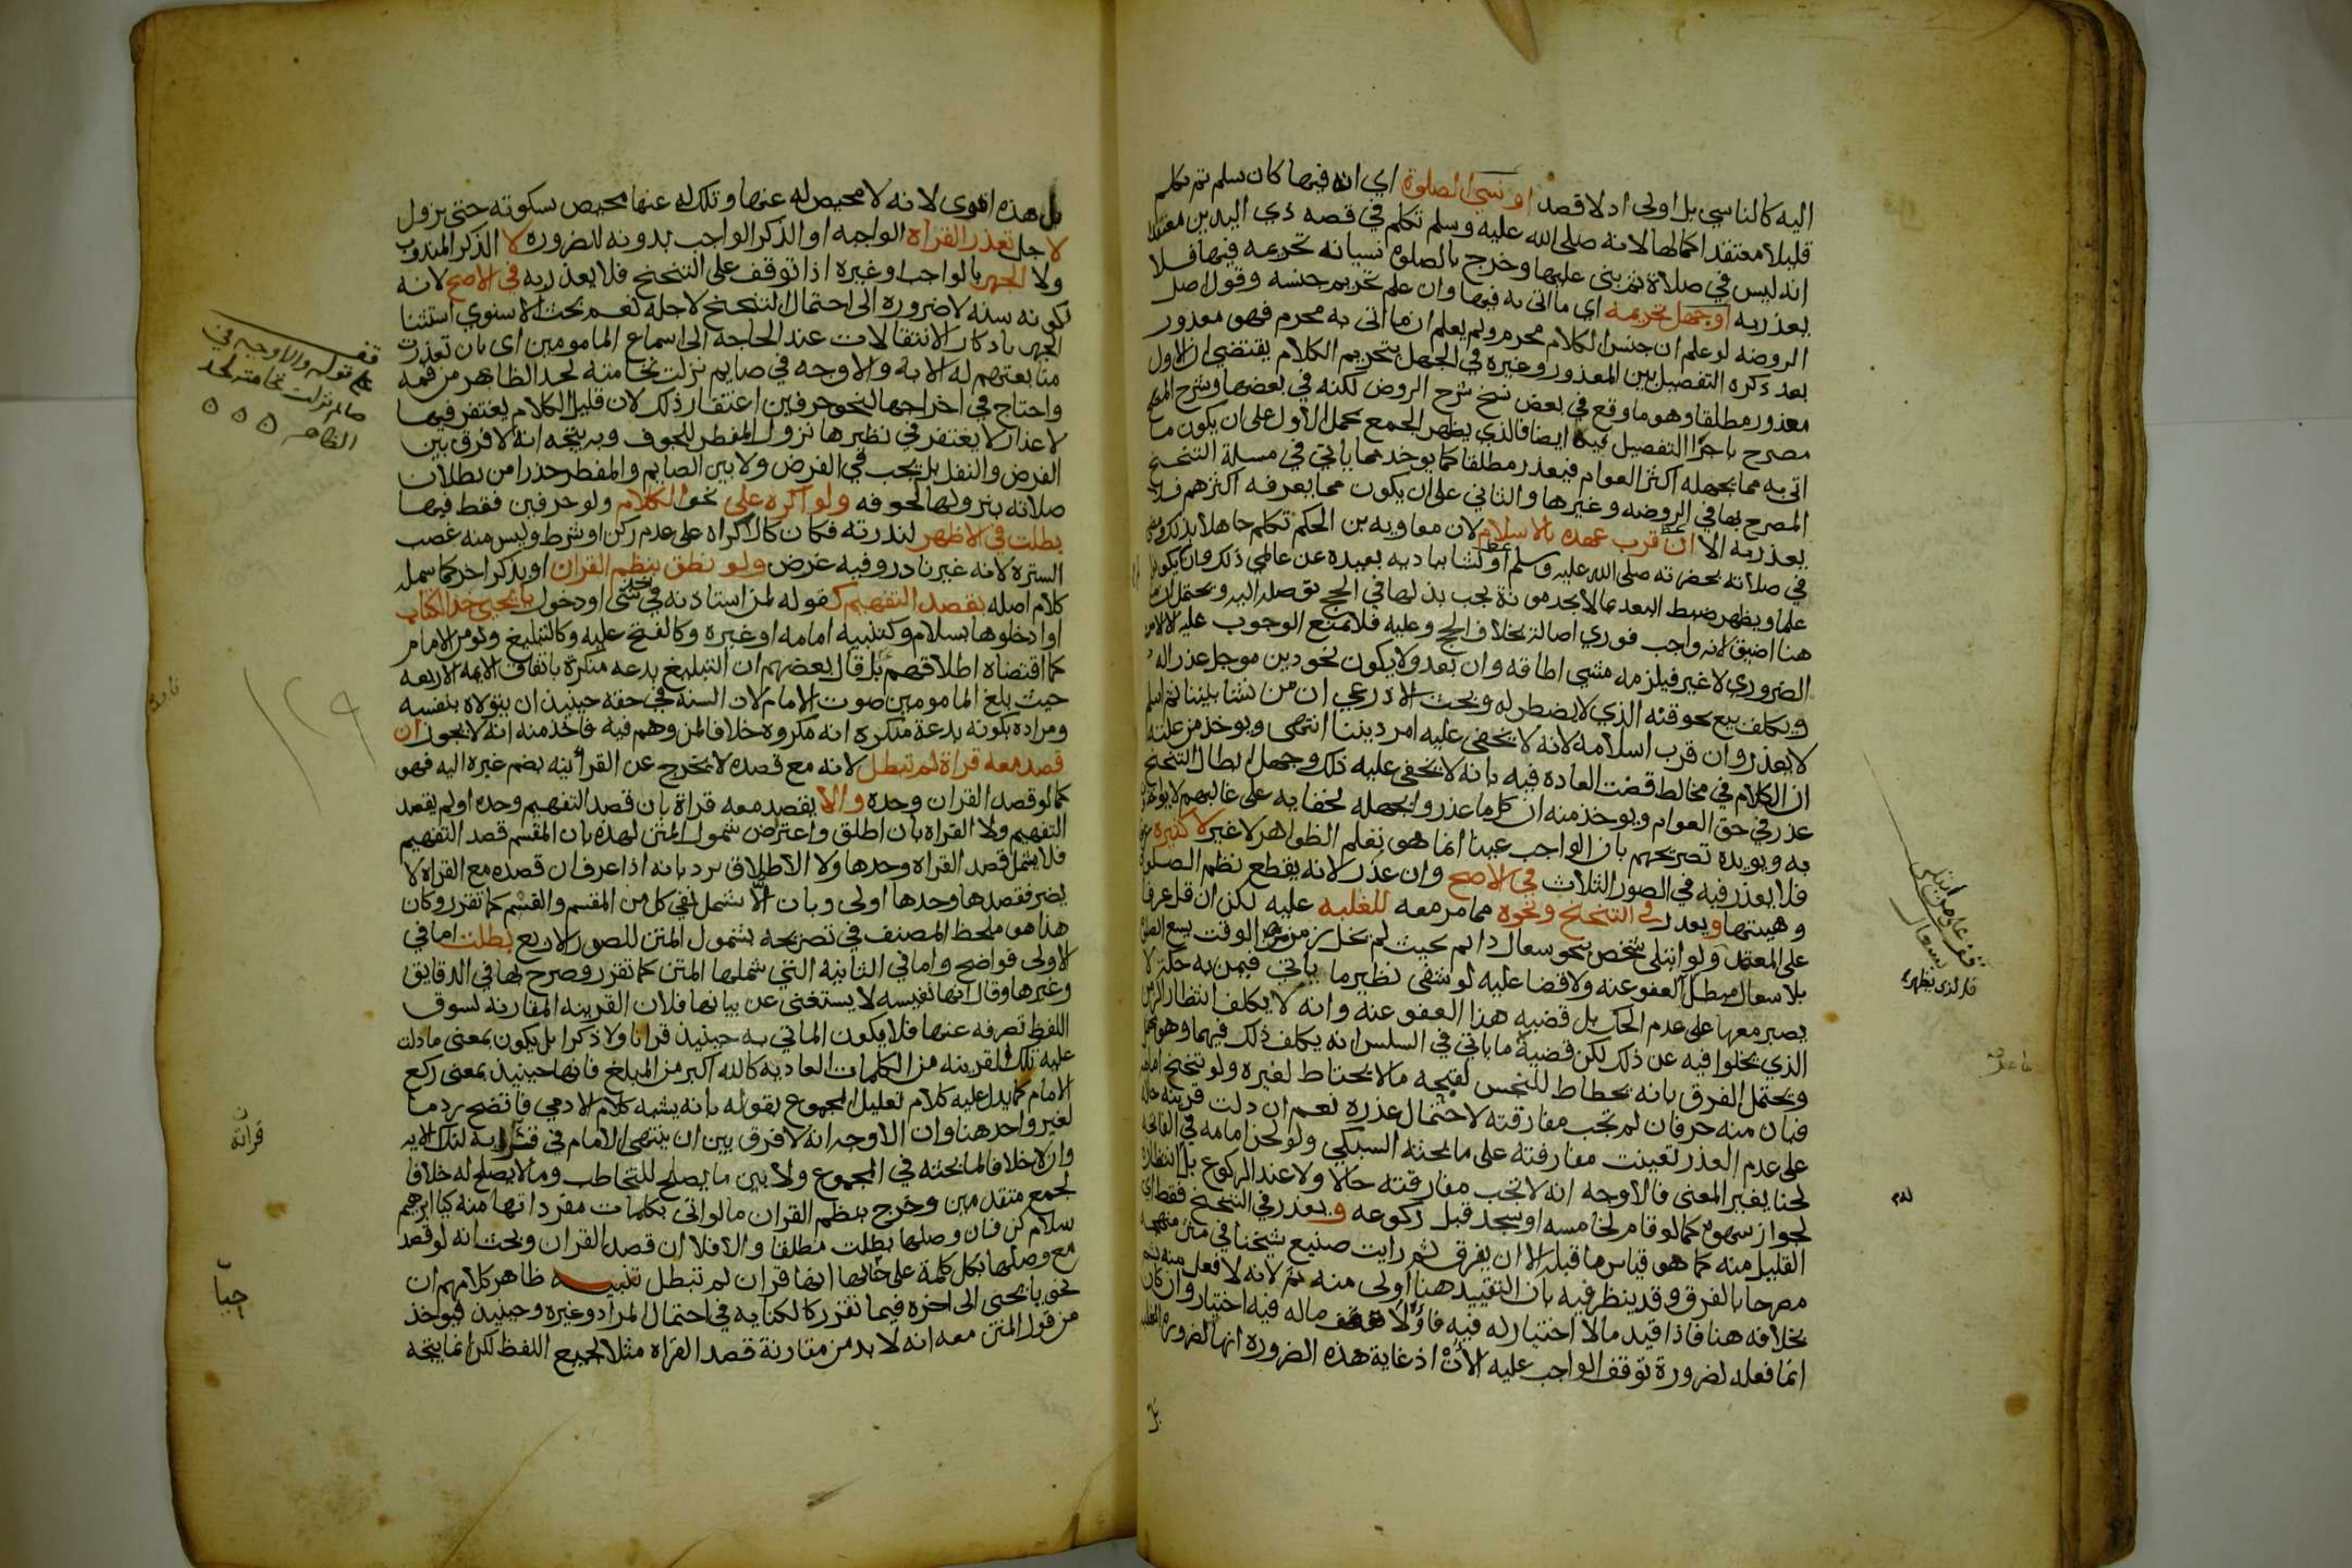 اليه كالناسي بل اولى اد لا قصد او نسي الصلوة اي انه فيها كان سلم ثم تكلم
قليلا معتقدا كمالها لانه صلى الله عليه وسلم تكلم في قصه ذي اليدين معتقدا
انه ليس في صلاة ثم بنى عليها وخرج بالصلوة نسيانه تحريمه فيها فلا
يعذر به او جهل تحريمه اي ما اتى به فيها وان علم تحريم جنسه وقول اصل
الروضه لو علم ان جنس الكلام محرم ولم يعلم ان ما اتى به محرم فهو معذور
بعد ذكره التفصيل بين المعذور وغيره في الجهل بتحريم الكلام يقتضي ان الاول
معذور مطلقا وهو ما وقع في بعض نسخ شرح الروض لكنه في بعضها وشرح
مصرح باجرا التفصيل فيه ايضا فالذي يظهر الجمع بحمل الاول على ان يكون ما
اتى به مما يجهله اكثر العوام فيعذر مطلقا كما يوخذ مما ياتي في مسلة التنحنح
المصرح بها في الروضه وغيرها والثاني على ان يكون مما يعرفه اكثرهم فلا
يعذر به الا ان قرب عهده بالاسلام لان معاويه بن الحكم تكلم جاهلا بذلك
في صلاته بحضرته صلى الله عليه وسلم او نشا بباديه بعيده عن عالمي ذلك وان يكونوا
علما ويظهر ضبط البعد بما لا يجد مونة يجب بذلها في الحج توصله اليه ويحتمل ان ما
هنا اضيق لانه واجب فوري اصالة بخلاف الحج وعليه فلا يمنع الوجوب عليه الا الامر
الضروري لا غير فيلزمه مشي اطاقه وان بعد ولا يكون نحو دين موجل عذرا له
ويكلف بيع نحو قنه الذي لا يضطر له وبحث الاذرعي ان من نشا بيننا ثم اسلم
لا يعذر وان قرب اسلامه لانه لا يخفى عليه امر ديننا انتهى ويوخذ من علته
ان الكلام في مخالط قضت العاده فيه بانه لا يخفى عليه ذلك وجهل ابطال التنحنح
عذر في حق العوام ويوخذ منه ان كل ما عذروا بجهله لخفايه على غالبهم لا يواخذ
به ويويده تصريحهم بان الواجب عينا انما هو تعلم الظواهر لا غير لا كثيره
فلا يعذر فيه في الصور الثلاث في الاصح وان عذر لانه يقطع نظم الصلوة
وهيئتها ويعذر في التنحنح ونحوه مما مر معه للغلبه عليه لكن ان قل عرفا
على المعتمد ولو ابتلى شخص بنحو سعال دائم بحيث لم يخل زمن من الوقت يسع الصلاة
بلا سعال مبطل العفو عنه ولا قضا عليه لو شفى نظير ما ياتي فيمن به حكة لا
يصبر معها على عدم الحك بل قضيه هذا العفو عنه وانه لا يكلف انتظار الزمن
الذي يخلوا فيه عن ذلك لكن قضية ما ياتي في السلس انه يكلف ذلك فيهما وهو
ويحتمل الفرق بانه يحطاط للنجس لقبحه ما لا يحتاط لغيره ولو تنحنح امامه
فبان منه حرفان لم تجب مفارقته لاحتمال عذره نعم ان دلت قرينه حاله
على عدم العذر تعينت مفارقته على ما بحثه السبكي ولو لحن امامه في الفاتحه
لحنا يغير المعنى فالاوجه انه لا تجب مفارقته حالا ولا عند الركوع بل انتظاره
لجواز سهوه كما لو قام لخامسه او سجد قبل ركوعه ويعذر في التنحنح فقط اي
القليل منه كما هو قياس ما قبله الا ان يفرق ثم رايت صنيع شيخنا في متن منهجه
مصرحا بالفرق وقد ينظر فيه بان التقييد هنا اولى منه ثم لانه لا فعل منه ثم
بخلافه هنا فاذا قيد ما لا اختيار له فيه فاولا ماله فيه اختيار وان كان
انما فعله لضرورة توقف الواجب عليه الان اذ غاية هذه الضروره انها لضروره الغلبه
بل
قف على من ابتلى
بسعال
فالذي يظهر
بل هذه اقوى لانه لا محيص له عنها وتلك له عنها محيص بسكوته حتى يزول
لاجل تعذر القراه الواجبه او الذكر الواجب بدونه للضروره لا الذكر المندوب
ولا الجهر بالواجب او غيره اذا توقف على التنحنح فلا يعذر به في الاصح لانه
لكونه سنه لا ضروره الى احتمال التنحنح لاجله نعم بحث الاسنوي استثنا
الجهر باذكار الانتقالات عند الحاجه الى اسماع المامومين اى بان تعذرت
متابعتهم له الا به والاوجه في صايم نزلت نخامته لحد الظاهر من فمه
واحتاج في اخراجها لنحو حرفين اغتفار ذلك لان قليل الكلام يغتفر فيها
لاعذار لا يغتفر في نظيرها نزول المفطر للجوف وبه يتجه انه لا فرق بين
الفرض والنفل بل يجب في الفرض ولا بين الصايم والمفطر حذرا من بطلان
صلاته بنزولها لجوفه ولو اكره على نحو الكلام ولو حرفين فقط فيها
بطلت في الاظهر لندرته فكان كالاكراه على عدم ركن او شرط وليس منه غصب
السترة لانه غير نادر وفيه غرض ولو نطق بنظم القران او بذكر اخر كما شمله
كلام اصله بقصد التفهيم كقوله لمن استاذنه في شي او دخول يا يحيى خذ الكتاب
او ادخلوها بسلام وكتنبيه امامه او غيره وكالفتح عليه وكالتبليغ ولو من الامام
كما اقتضاه اطلاقهم بل قال بعضهم ان التبليغ بدعه منكرة باتفاق الايمه الاربعه
حيث بلغ المامومين صوت الامام لان السنه في حقه حينيذ ان يتولاه بنفسه
ومراده بكونه بدعة منكره انه مكروه خلافا لمن وهم فيه فاخذ منه انه لا يجوز ان
قصد معه قراة لم تبطل لانه مع قصده لا يخرج عن القرآنيه بضم غيره اليه فهو
كما لو قصد القران وحده والا يقصد معه قراة بان قصد التفهيم وحده او لم يقصد
التفهيم ولا القراه بان اطلق واعترض شمول المتن لهذه بان المقسم قصد التفهيم
فلا يشمل قصد القراه وحدها ولا الاطلاق يرد بانه اذا عرف ان قصده مع القراه لا
يضر فقصدها وحدها اولى وبان الا تشمل نفي كل من المقسم والقسم كما تقرر وكان
هذا هو ملحظ المصنف في تصريحه بشمول المتن للصور الاربع بطلت اما في
الاولى فواضح واما في الثانيه التي شملها المتن كما تقرر وصرح بها في الدقايق
وغيرها وقال انها نفيسه لا يستغنى عن بيانها فلان القرينه المقارنه لسوق
اللفظ تصرفه عنها فلا يكون الماتي به حينيذ قرانا ولا ذكرا بل يكون بمعنى ما دلت
عليه تلك القرينه من الكلمات العاديه كالله اكبر من المبلغ فانها حينيذ بمعنى ركع
الامام كما يدل عليه كلام تعليل المجموع بقوله بانه يشبه كلام الادمي فاتضح رد ما
لغير واحد هنا وان الاوجه انه لا فرق بين ان ينتهى الامام في قراته لتلك الايه
وان لا خلافا لما بحثه في المجموع ولا بين ما يصلح للتخاطب وما لا يصلح له خلافا
لجمع متقدمين وخرج بنظم القران ما لو اتى بكلمات مفرداتها منه كيا ابرهيم
سلام كن فان وصلها بطلت مطلقا والا فلا ان قصد القران وبحث انه لو قصد
مع وصلها بكل كلمة على حيالها انها قران لم تبطل تنبيه ظاهر كلامهم ان
نحو يا يحيى الى اخره فيما تقرر كالكنايه في احتمال المراد وغيره وحينيذ فيوخذ
من قول المتن معه انه لا بد من مقارنة قصد القراه مثلا لجميع اللفظ لكن انما يتجه
قف
على قوله والاوجه في
صايم نزلت نخامته لحد
الظاهر
١٢٩
قراتة
حيا